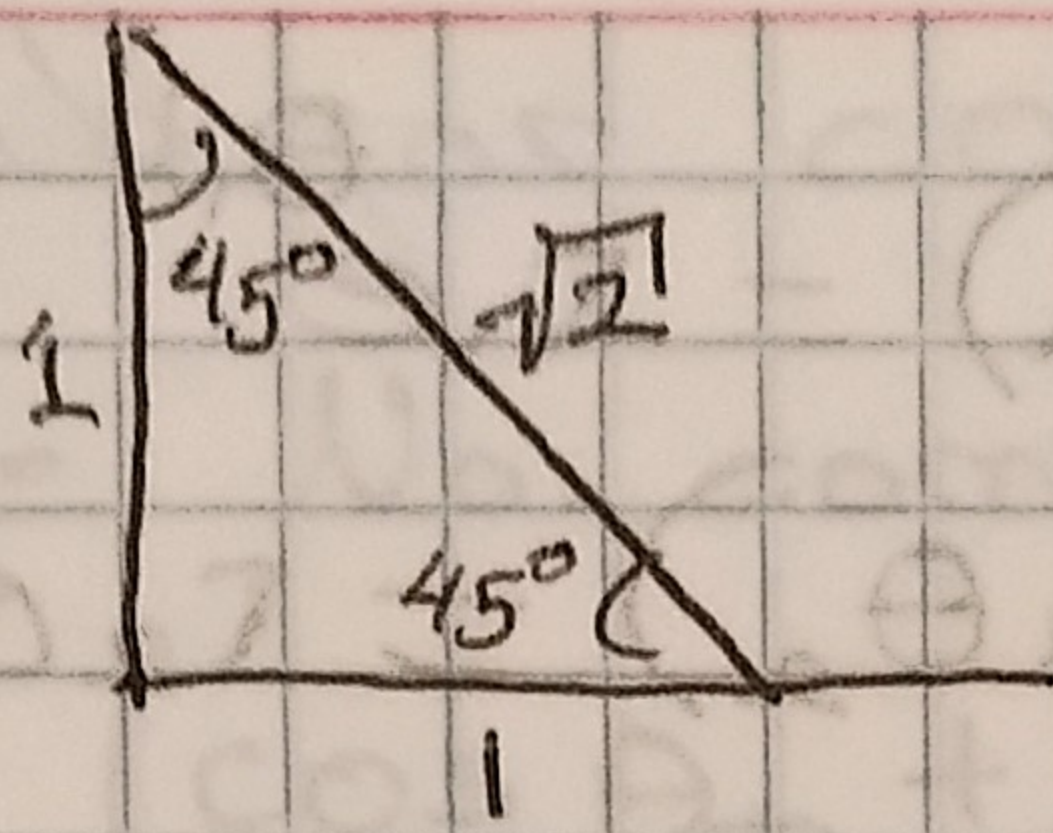 45°
√2
1
45°
1